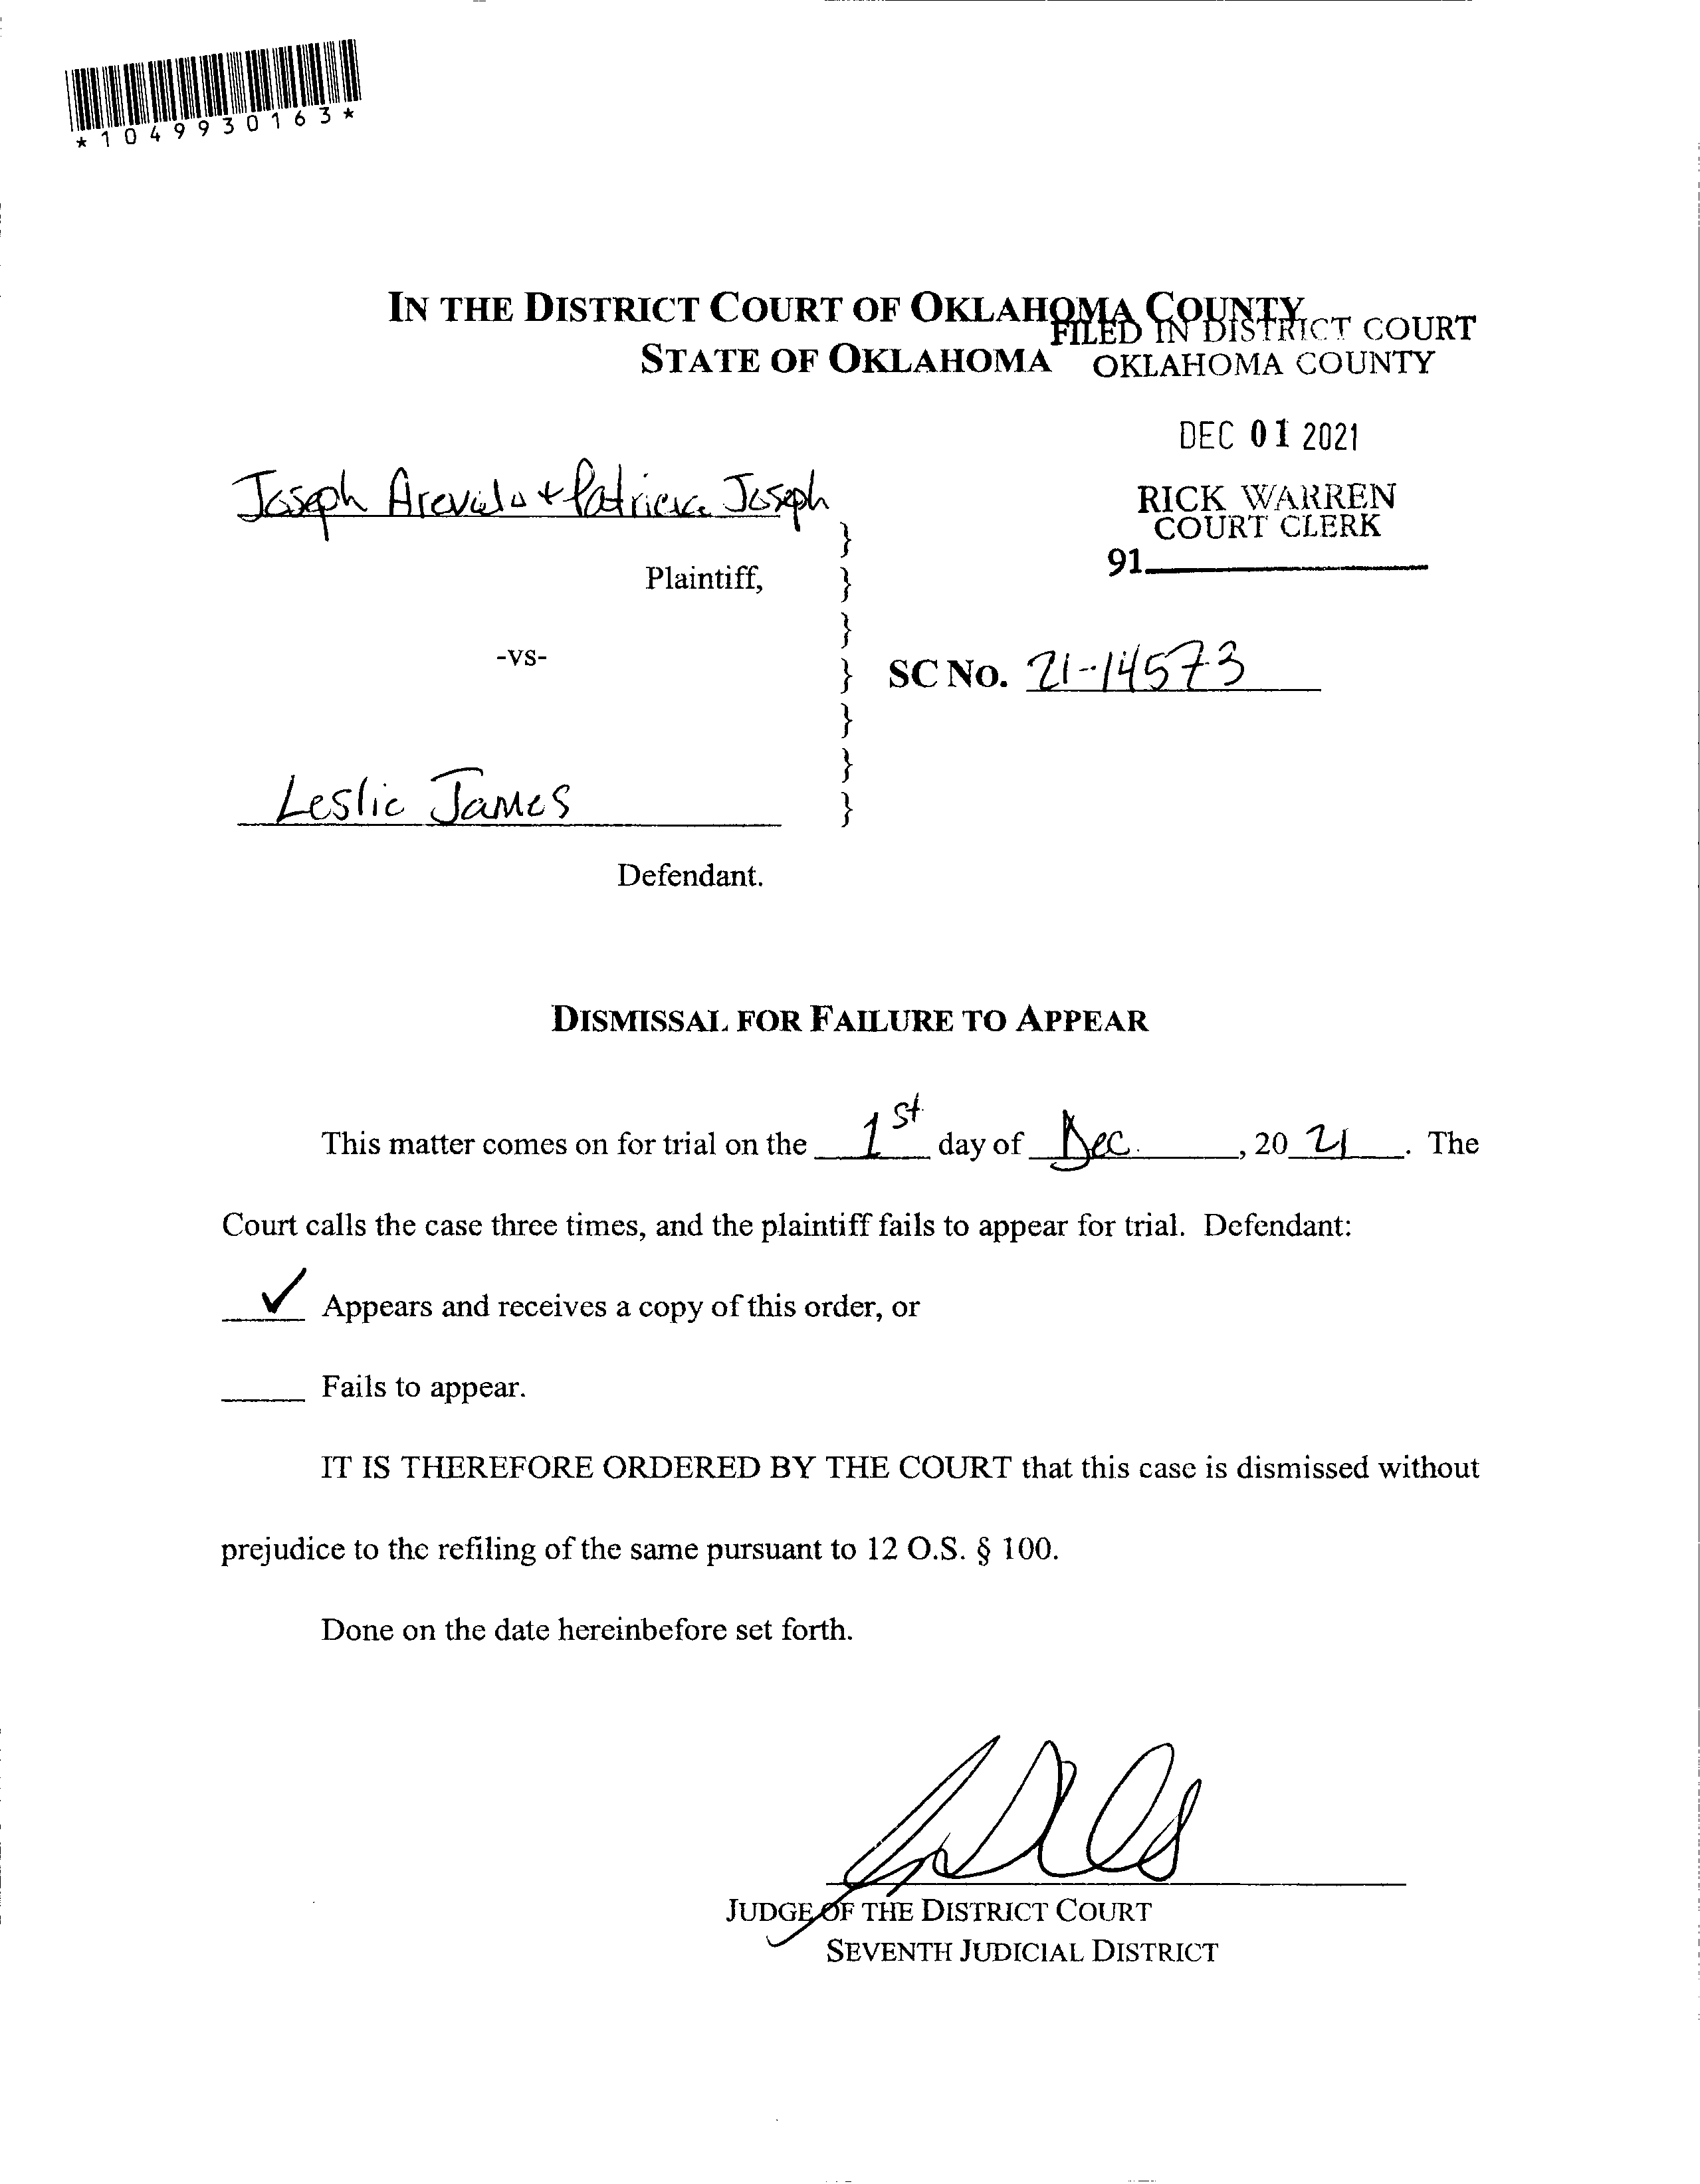 *1049930163*
IN THE DISTRICT COURT OF OKLAHOMA COUNTY
STATE OF OKLAHOMA
FILED IN DISTRICT COURT
OKLAHOMA COUNTY
DEC 01 2021
RICK WARREN
COURT CLERK
91
Joseph Arevalo + Patricia Joseph
Plaintiff,
-vs-
SC NO. 21-14573
Leslie James
Defendant.
}
}
}
}
}
}
}
DISMISSAL FOR FAILURE TO APPEAR
This matter comes on for trial on the 1st day of Dec. , 20 21 . The
Court calls the case three times, and the plaintiff fails to appear for trial. Defendant:
✓ Appears and receives a copy of this order, or
Fails to appear.
IT IS THEREFORE ORDERED BY THE COURT that this case is dismissed without
prejudice to the refiling of the same pursuant to 12 O.S. § 100.
Done on the date hereinbefore set forth.
JUDGE OF THE DISTRICT COURT
SEVENTH JUDICIAL DISTRICT